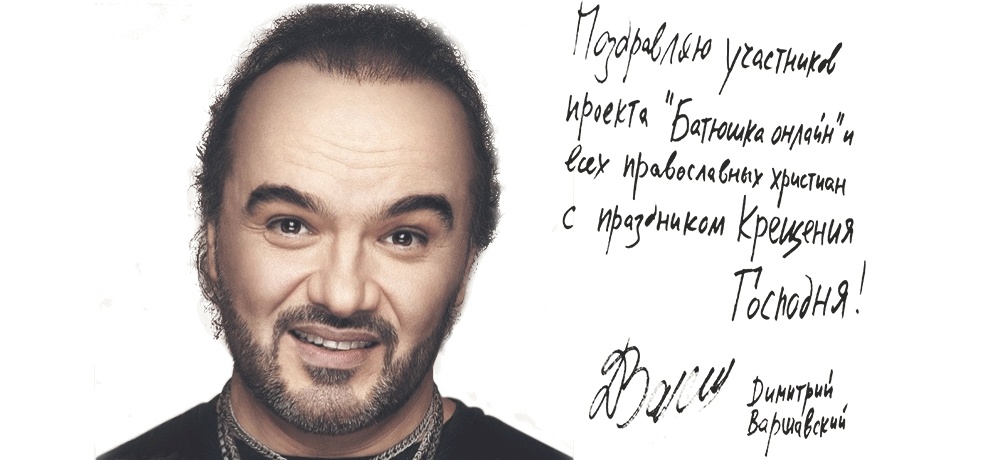 Поздравляю участников
проекта "Батюшка онлайн" и
всех православных христиан
с праздником Крещения
Господня!
ДВарш
Димитрий
Варшавский